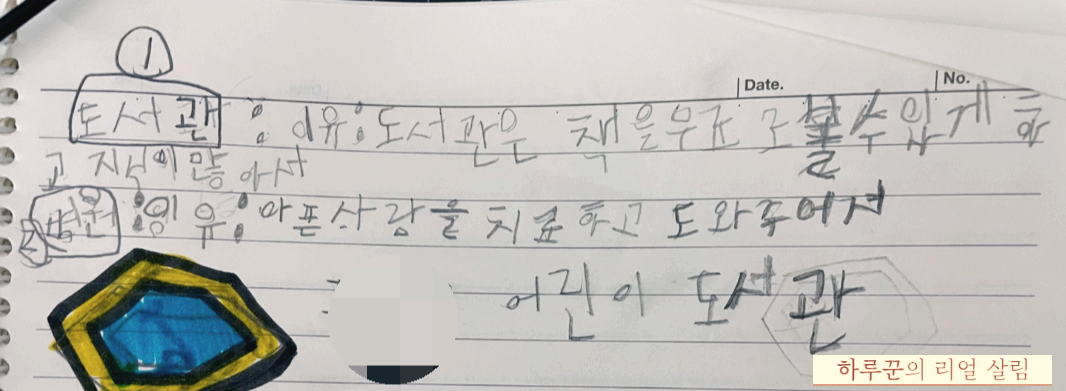 ①
Date.
No.
도서관 : 이유: 도서관은 책을무료로 볼수있게 하
고 지식이많아서
② 병원 : 이유: 아픈사람을 치료하고 도와주어서
어린이 도서관
하루꾼의 리얼 살림